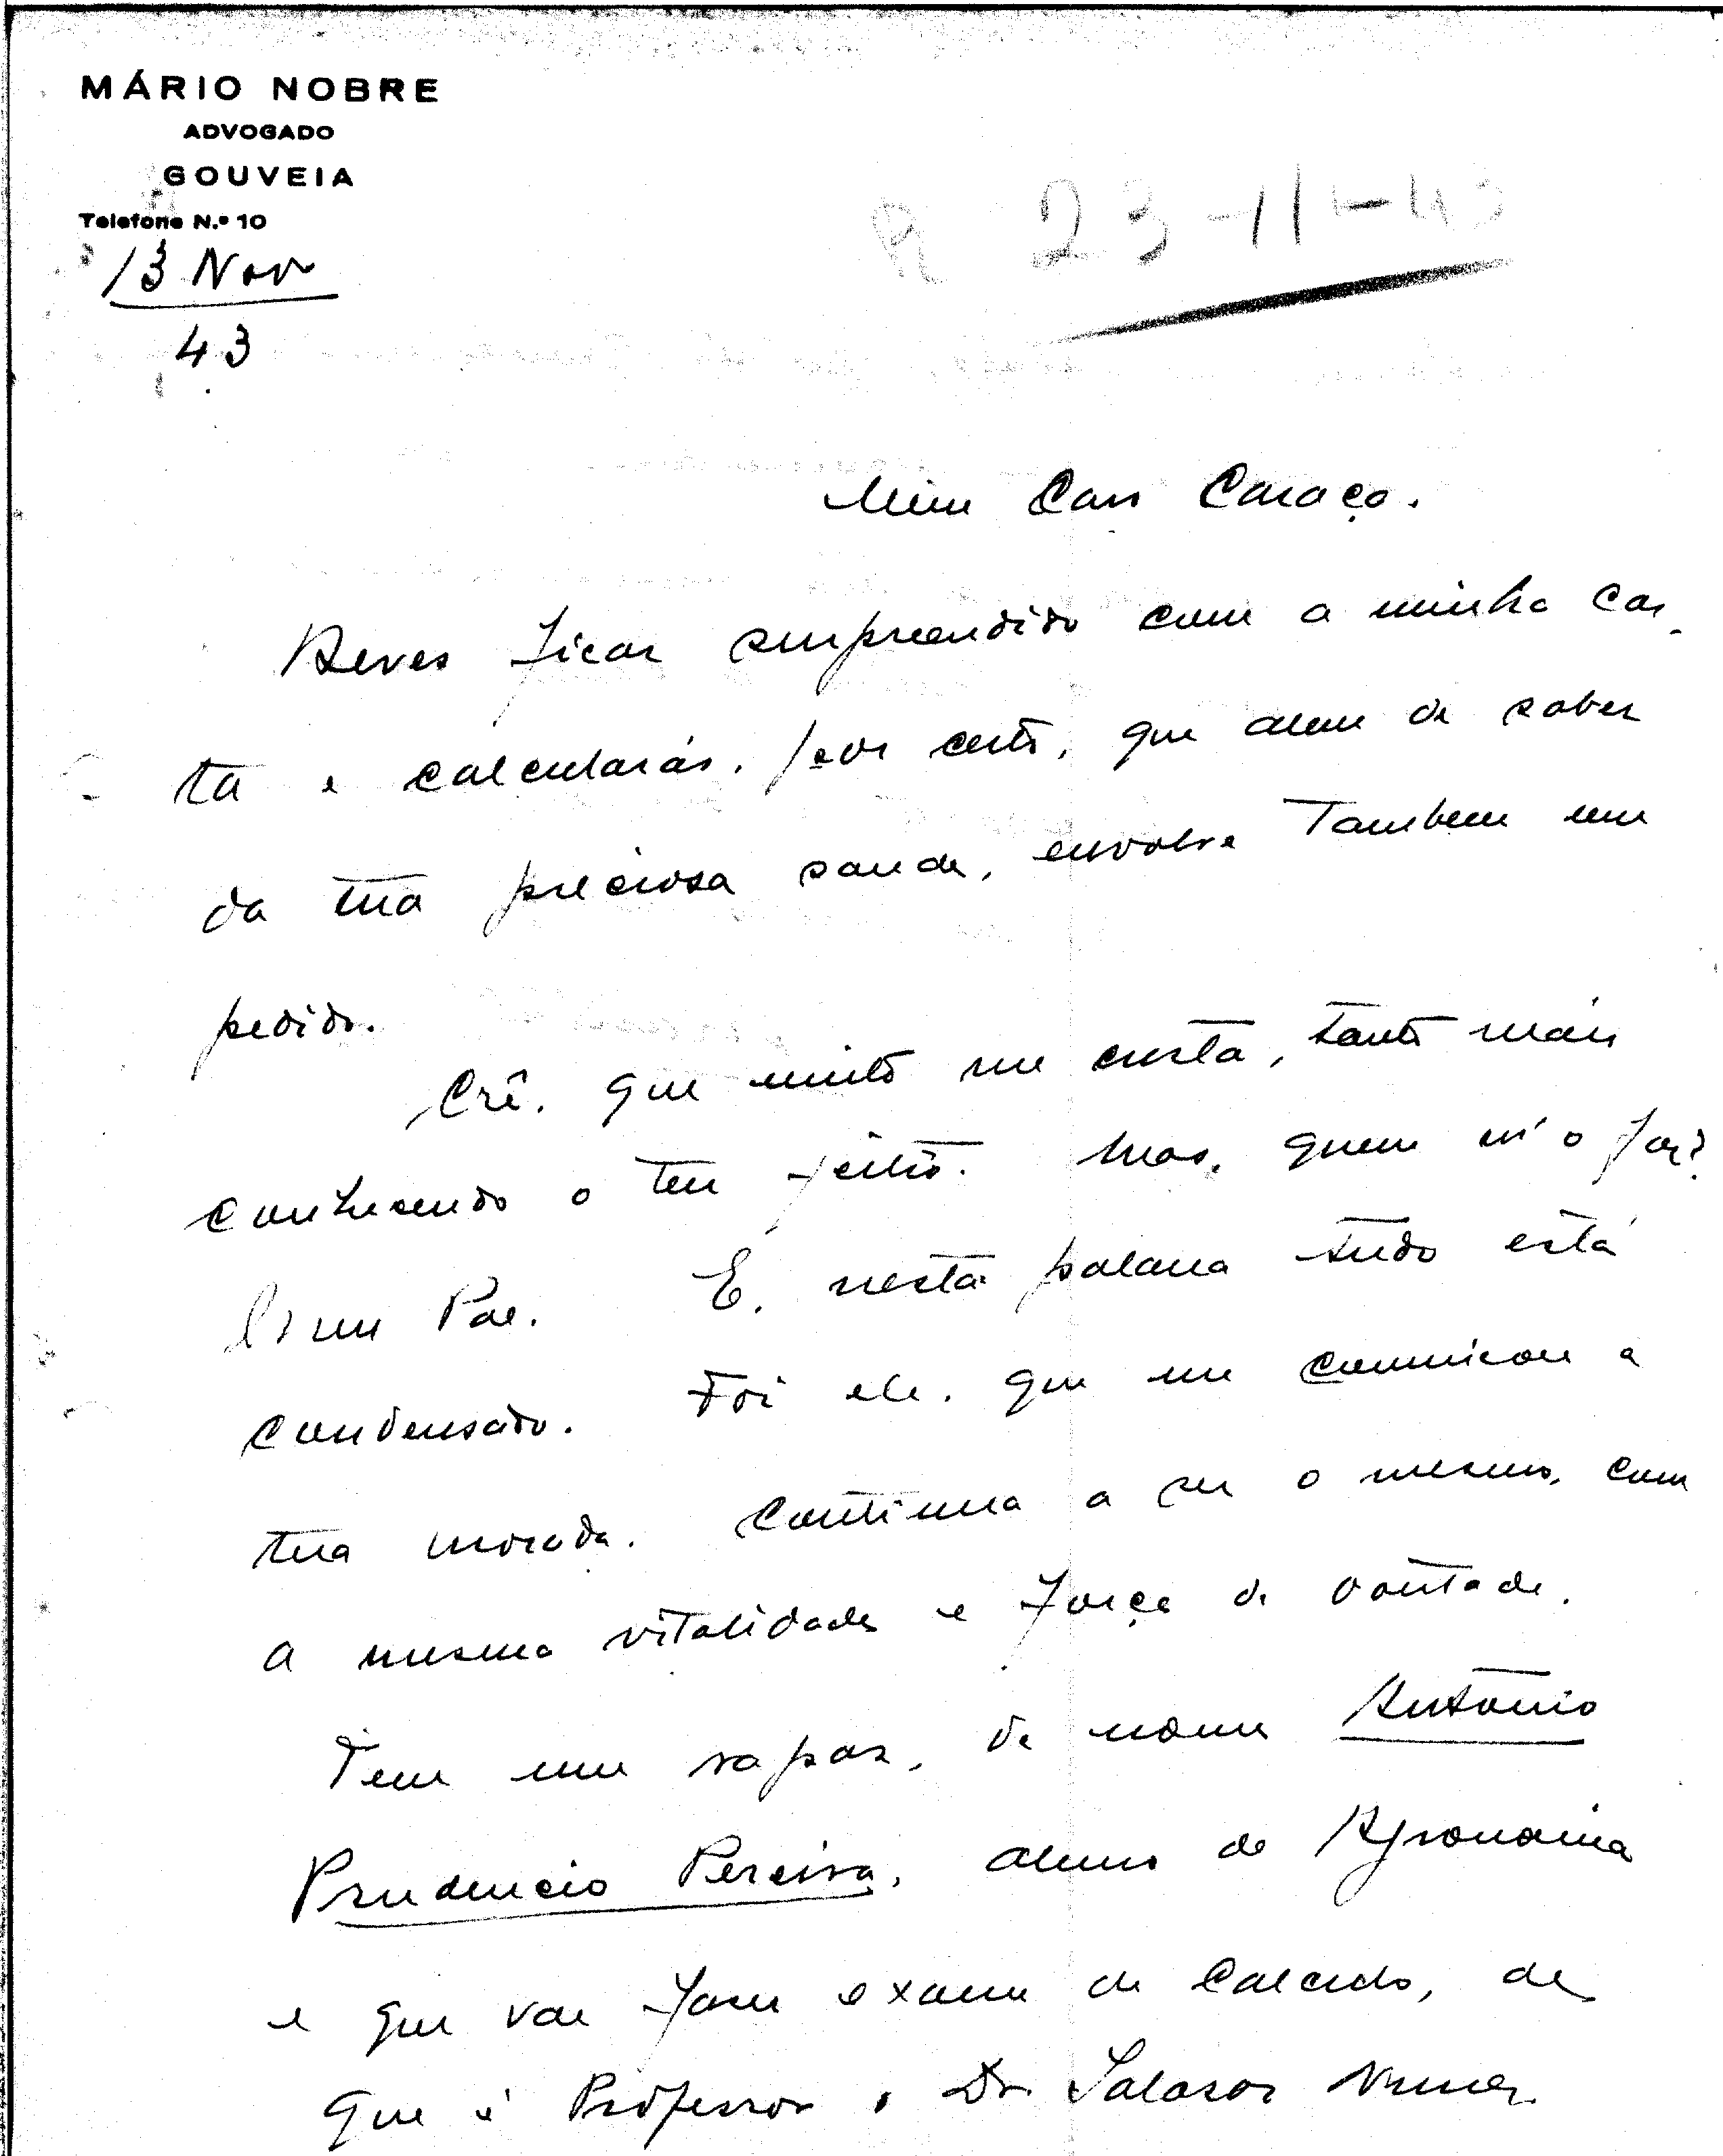 MÁRIO NOBRE
ADVOGADO
GOUVEIA
Telefone N.º 10
13 Nov
43
R 23-11-43
Meu Caro Caraça.
Deves ficar surpreendido com a minha car-
ta e calcularás, por certo, que alem de saber
da tua preciosa saude, envolve Tambem um
pedido.
Crê, que muito me custa, tanto mais
conhecendo o teu feitio. Mas, quem m'o faz?
O meu Pae. E, nesta palavra tudo está
condensado. Foi ele, que me comunicou a
tua morada. Continua a ser o mesmo, com
a mesma vitalidade e força de vontade.
Tem um rapaz, de nome Antonio
Prudencio Pereira, aluno de Agronomia
e que vae fazer exame de Calculo, de
que é Professor o Dr. Salazar Nunes